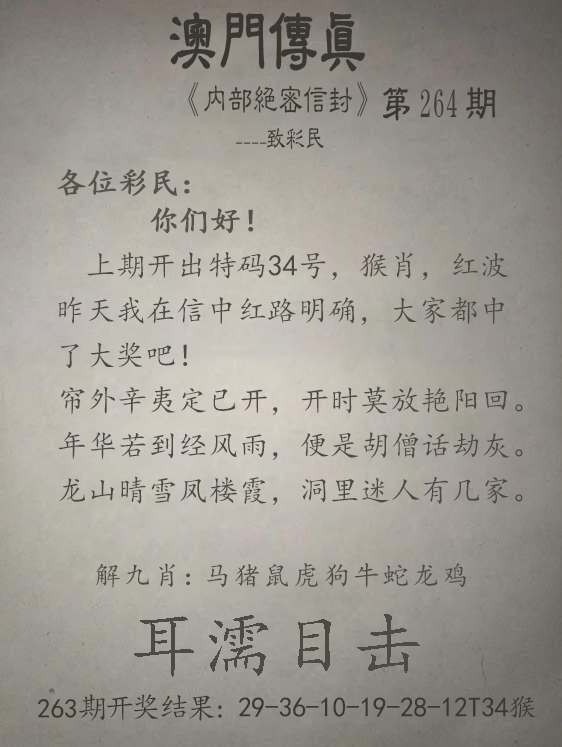 澳門傳真
《内部絕密信封》第264期
----致彩民
各位彩民：
你们好！
上期开出特码34号，猴肖，红波
昨天我在信中红路明确，大家都中
了大奖吧！
帘外辛夷定已开，开时莫放艳阳回。
年华若到经风雨，便是胡僧话劫灰。
龙山晴雪凤楼霞，洞里迷人有几家。
解九肖：马猪鼠虎狗牛蛇龙鸡
耳濡目击
263期开奖结果：29-36-10-19-28-12T34猴